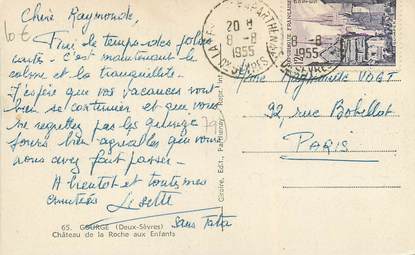 10 €
Chère Raymonde,
Fini le temps des jolies
cartes - c'est maintenant le
calme et la tranquillité.
J'espère que vos vacances vont
bien se continuer et que vous
ne regrettez pas les quinze
jours bien agréables que vous
nous avez fait passer -
A bientôt et toutes mes
amitiés Lisette
sans Tata
79
65. GOURGE (Deux-Sèvres)
Château de la Roche aux Enfants
Giroire, Edit., Parthenay, Repr. int.
PARTHENAY
20 H
8 - 8
1955
DX SEVRES
8 - 8
1955
SEVRES
FRANÇAISE
12F
Mme Raymonde VOGT
92, rue Bobillot
PARIS